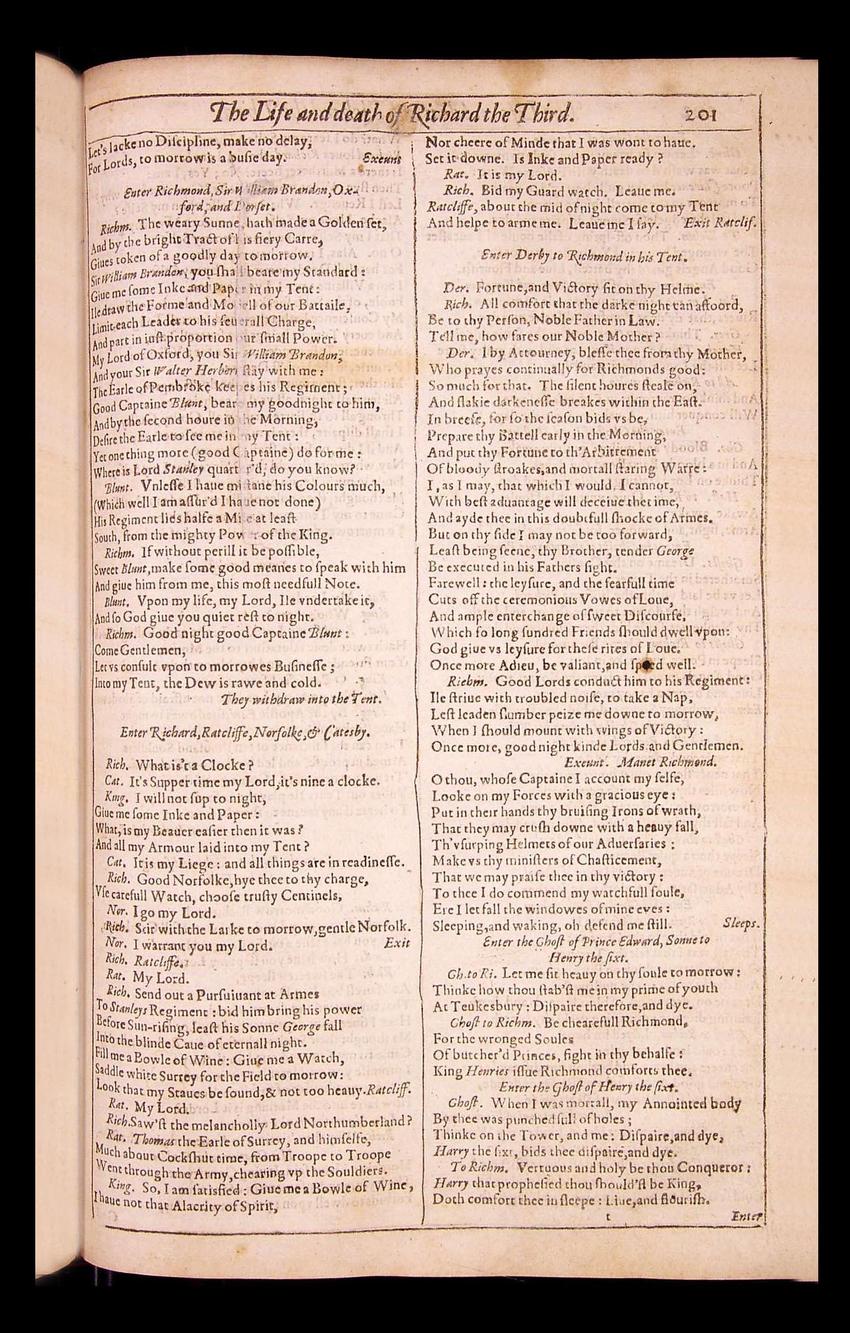 The Life and death of Richard the Third. 201
Let's lacke no Discipline, make no delay,
For Lords, to morrow is a busie day. Exeunt
Enter Richmond, Sir William Brandon, Ox-
ford, and Dorset.
Richm. The weary Sunne, hath made a Golden set,
And by the bright Tract of his fiery Carre,
Giues token of a goodly day to morrow.
Sir William Brandon, you shall beare my Standard:
Giue me some Inke and Paper in my Tent:
Ile draw the Forme and Modell of our Battaile,
Limit each Leader to his seuerall Charge,
And part in iust proportion our small Power.
My Lord of Oxford, you Sir William Brandon,
And your Sir Walter Herbert stay with me:
The Earle of Pembroke keepes his Regiment;
Good Captaine Blunt, beare my goodnight to him,
And by the second houre in the Morning,
Desire the Earle to see me in my Tent:
Yet one thing more (good Captaine) do for me:
Where is Lord Stanley quarter'd, do you know?
Blunt. Vnlesse I haue mistane his Colours much,
(Which well I am assur'd I haue not done)
His Regiment lies halfe a Mile at least
South, from the mighty Power of the King.
Richm. If without perill it be possible,
Sweet Blunt, make some good meanes to speak with him
And giue him from me, this most needfull Note.
Blunt. Vpon my life, my Lord, Ile vndertake it,
And so God giue you quiet rest to night.
Richm. Good night good Captaine Blunt:
Come Gentlemen,
Let vs consult vpon to morrowes Businesse;
Into my Tent, the Dew is rawe and cold.
They withdraw into the Tent.
Enter Richard, Ratcliffe, Norfolke, & Catesby.
Rich. What is't a Clocke?
Cat. It's Supper time my Lord, it's nine a clocke.
King. I will not sup to night,
Giue me some Inke and Paper:
What, is my Beauer easier then it was?
And all my Armour laid into my Tent?
Cat. It is my Liege: and all things are in readinesse.
Rich. Good Norfolke, hye thee to thy charge,
Vse carefull Watch, choose trusty Centinels,
Nor. I go my Lord.
Rich. Stir with the Larke to morrow, gentle Norfolk.
Nor. I warrant you my Lord. Exit
Rich. Ratcliffe.
Rat. My Lord.
Rich. Send out a Pursuiuant at Armes
To Stanleys Regiment: bid him bring his power
Before Sun-rising, least his Sonne George fall
Into the blinde Caue of eternall night.
Fill me a Bowle of Wine: Giue me a Watch,
Saddle white Surrey for the Field to morrow:
Look that my Staues be sound, & not too heauy. Ratcliff.
Rat. My Lord.
Rich. Saw'st the melancholly Lord Northumberland?
Rat. Thomas the Earle of Surrey, and himselfe,
Much about Cockshut time, from Troope to Troope
Went through the Army, chearing vp the Souldiers.
King. So, I am satisfied: Giue me a Bowle of Wine,
I haue not that Alacrity of Spirit,
Nor cheere of Minde that I was wont to haue.
Set it downe. Is Inke and Paper ready?
Rat. It is my Lord.
Rich. Bid my Guard watch. Leaue me.
Ratcliffe, about the mid of night come to my Tent
And helpe to arme me. Leaue me I say. Exit Ratclif.
Enter Derby to Richmond in his Tent.
Der. Fortune, and Victory sit on thy Helme.
Rich. All comfort that the darke night can affoord,
Be to thy Person, Noble Father in Law.
Tell me, how fares our Noble Mother?
Der. I by Attourney, blesse thee from thy Mother,
Who prayes continually for Richmonds good:
So much for that. The silent houres steale on,
And flakie darkenesse breakes within the East.
In breefe, for so the season bids vs be,
Prepare thy Battell early in the Morning,
And put thy Fortune to th'Arbitrement
Of bloody stroakes, and mortall staring Warre:
I, as I may, that which I would, I cannot,
With best aduantage will deceiue the time,
And ayde thee in this doubtfull shocke of Armes.
But on thy side I may not be too forward,
Least being seene, thy Brother, tender George
Be executed in his Fathers sight.
Farewell: the leysure, and the fearfull time
Cuts off the ceremonious Vowes of Loue,
And ample enterchange of sweet Discourse,
Which so long sundred Friends should dwell vpon:
God giue vs leysure for these rites of Loue.
Once more Adieu, be valiant, and speed well.
Richm. Good Lords conduct him to his Regiment:
Ile striue with troubled noise, to take a Nap,
Lest leaden slumber peize me downe to morrow,
When I should mount with wings of Victory:
Once more, good night kinde Lords and Gentlemen.
Exeunt. Manet Richmond.
O thou, whose Captaine I account my selfe,
Looke on my Forces with a gracious eye:
Put in their hands thy bruising Irons of wrath,
That they may crush downe with a heauy fall,
Th'vsurping Helmets of our Aduersaries:
Make vs thy ministers of Chasticement,
That we may praise thee in thy victory:
To thee I do commend my watchfull soule,
Ere I let fall the windowes of mine eyes:
Sleeping, and waking, oh defend me still. Sleeps.
Enter the Ghost of Prince Edward, Sonne to
Henry the sixt.
Gh. to Ri. Let me sit heauy on thy soule to morrow:
Thinke how thou stab'st me in my prime of youth
At Teukesbury: Dispaire therefore, and dye.
Ghost to Richm. Be chearefull Richmond,
For the wronged Soules
Of butcher'd Princes, fight in thy behalfe:
King Henries issue Richmond comforts thee.
Enter the Ghost of Henry the sixt.
Ghost. When I was mortall, my Annointed body
By thee was punched full of holes;
Thinke on the Tower, and me: Dispaire, and dye,
Harry the sixt, bids thee dispaire, and dye.
To Richm. Vertuous and holy be thou Conqueror:
Harry that prophesied thou should'st be King,
Doth comfort thee in sleepe: Liue, and flourish.
t Enter